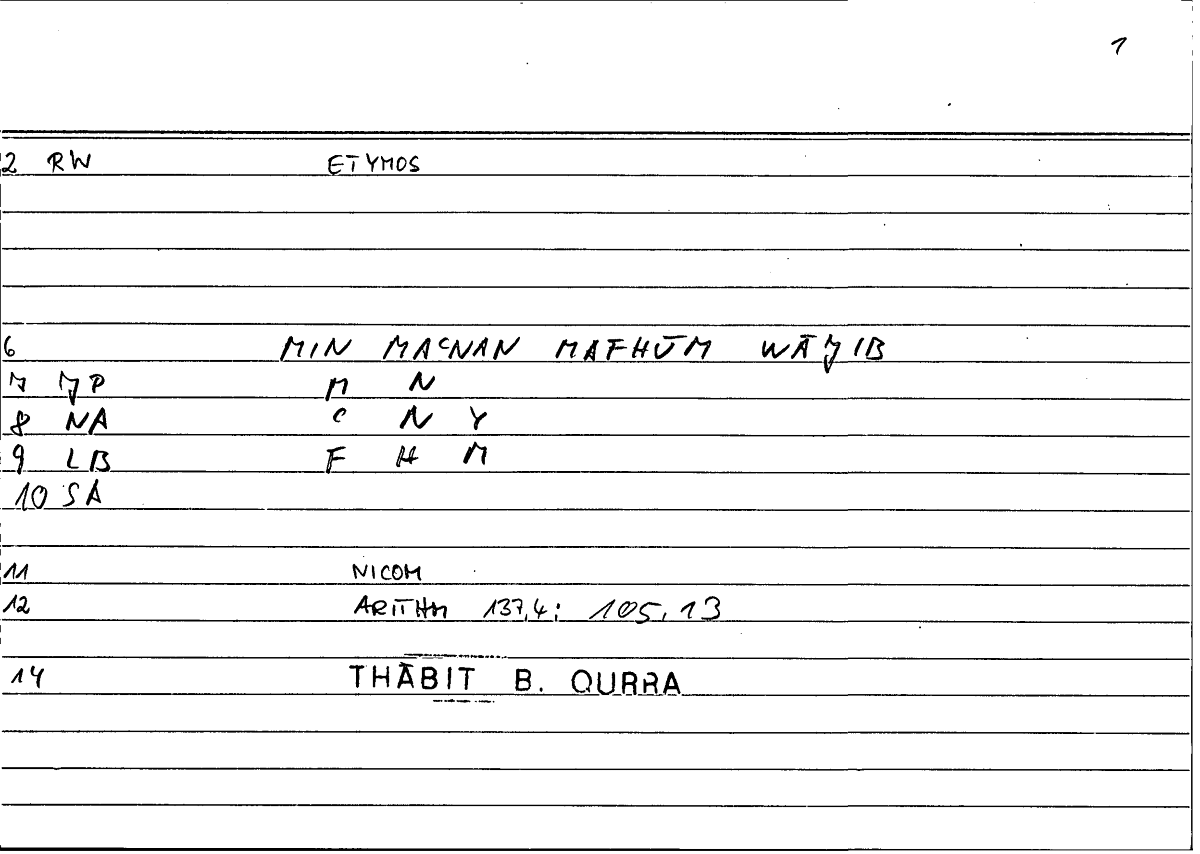 1
2 RW ETYMOS
6 MIN MAᶜNAN MAFHŪM WĀJIB
7 JP M N
8 NA ᶜ N Y
9 LB F H M
10 SA
11 NICOM
12 ARITHM 137,4; 105,13
14 THĀBIT B. QURRA